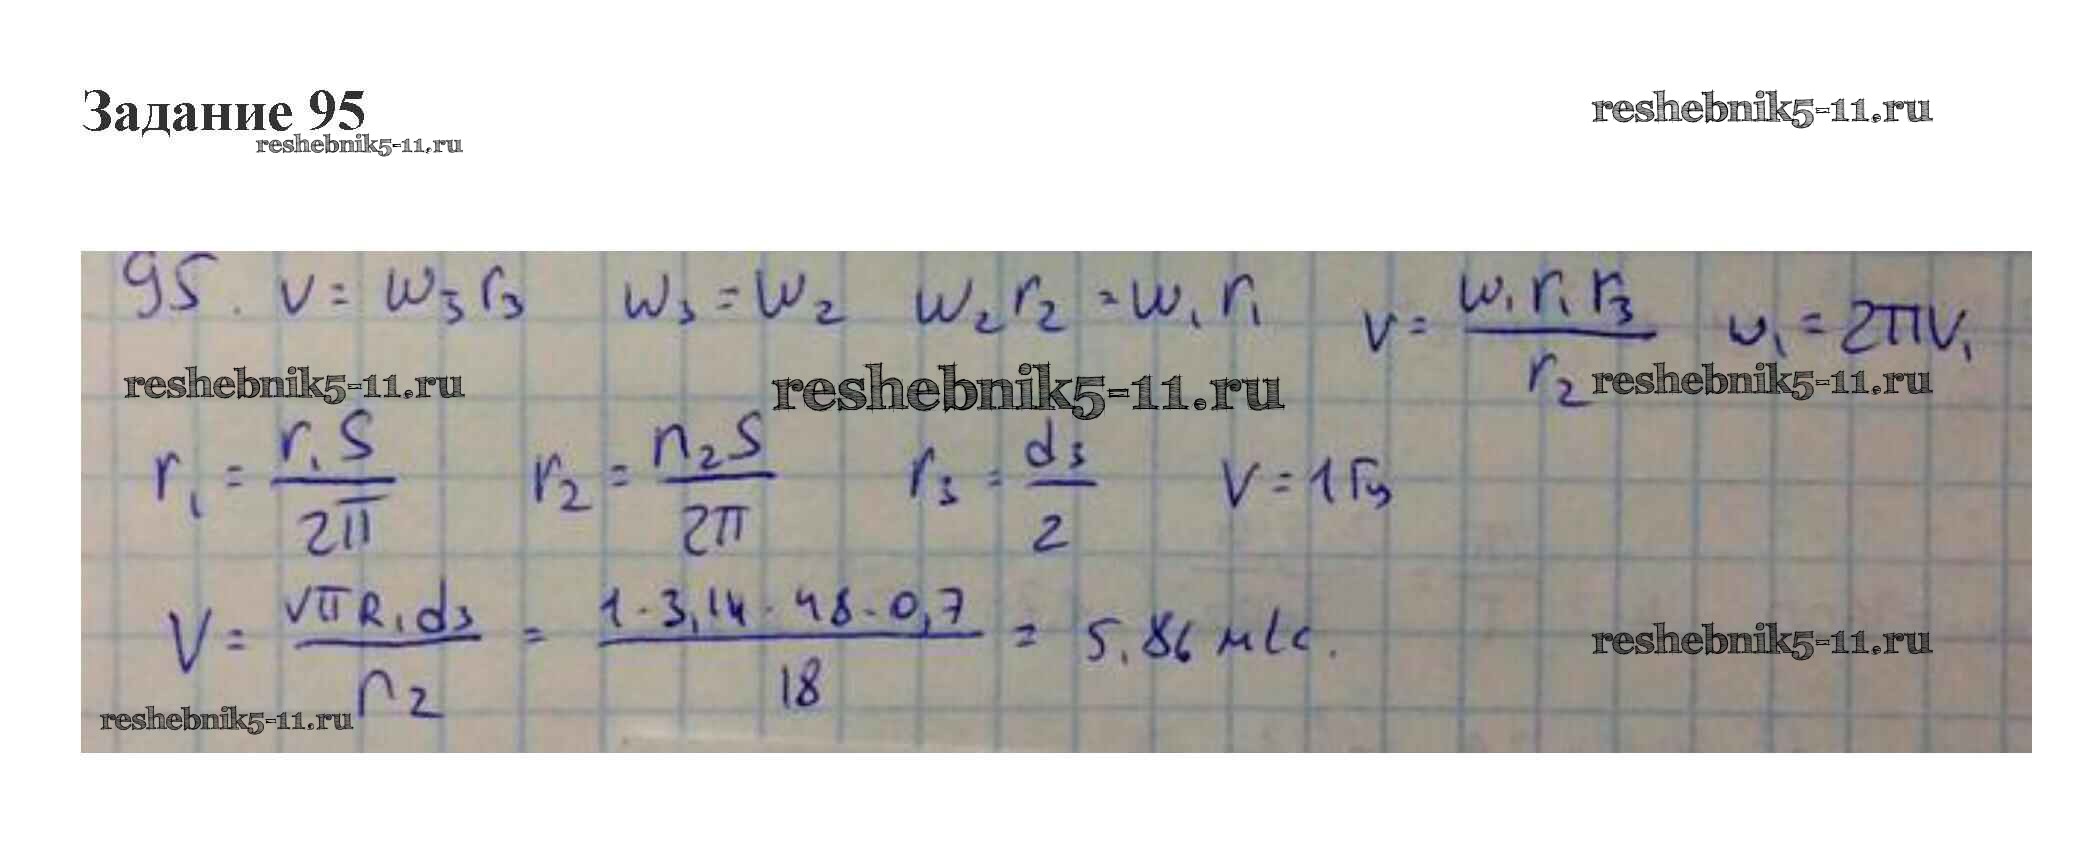 Задание 95
reshebnik5-11.ru
reshebnik5-11.ru
95. v = w₃r₃ w₃ = w₂ w₂r₂ = w₁r₁ v = w₁r₁r₃ / r₂ w₁ = 2πν₁
reshebnik5-11.ru reshebnik5-11.ru reshebnik5-11.ru
r₁ = r₁S / 2π r₂ = n₂S / 2π r₃ = d₃ / 2 ν = 1 Гц
V = νπR₁d₃ / n₂ = 1·3,14·48·0,7 / 18 = 5,86 м/с.
reshebnik5-11.ru
reshebnik5-11.ru